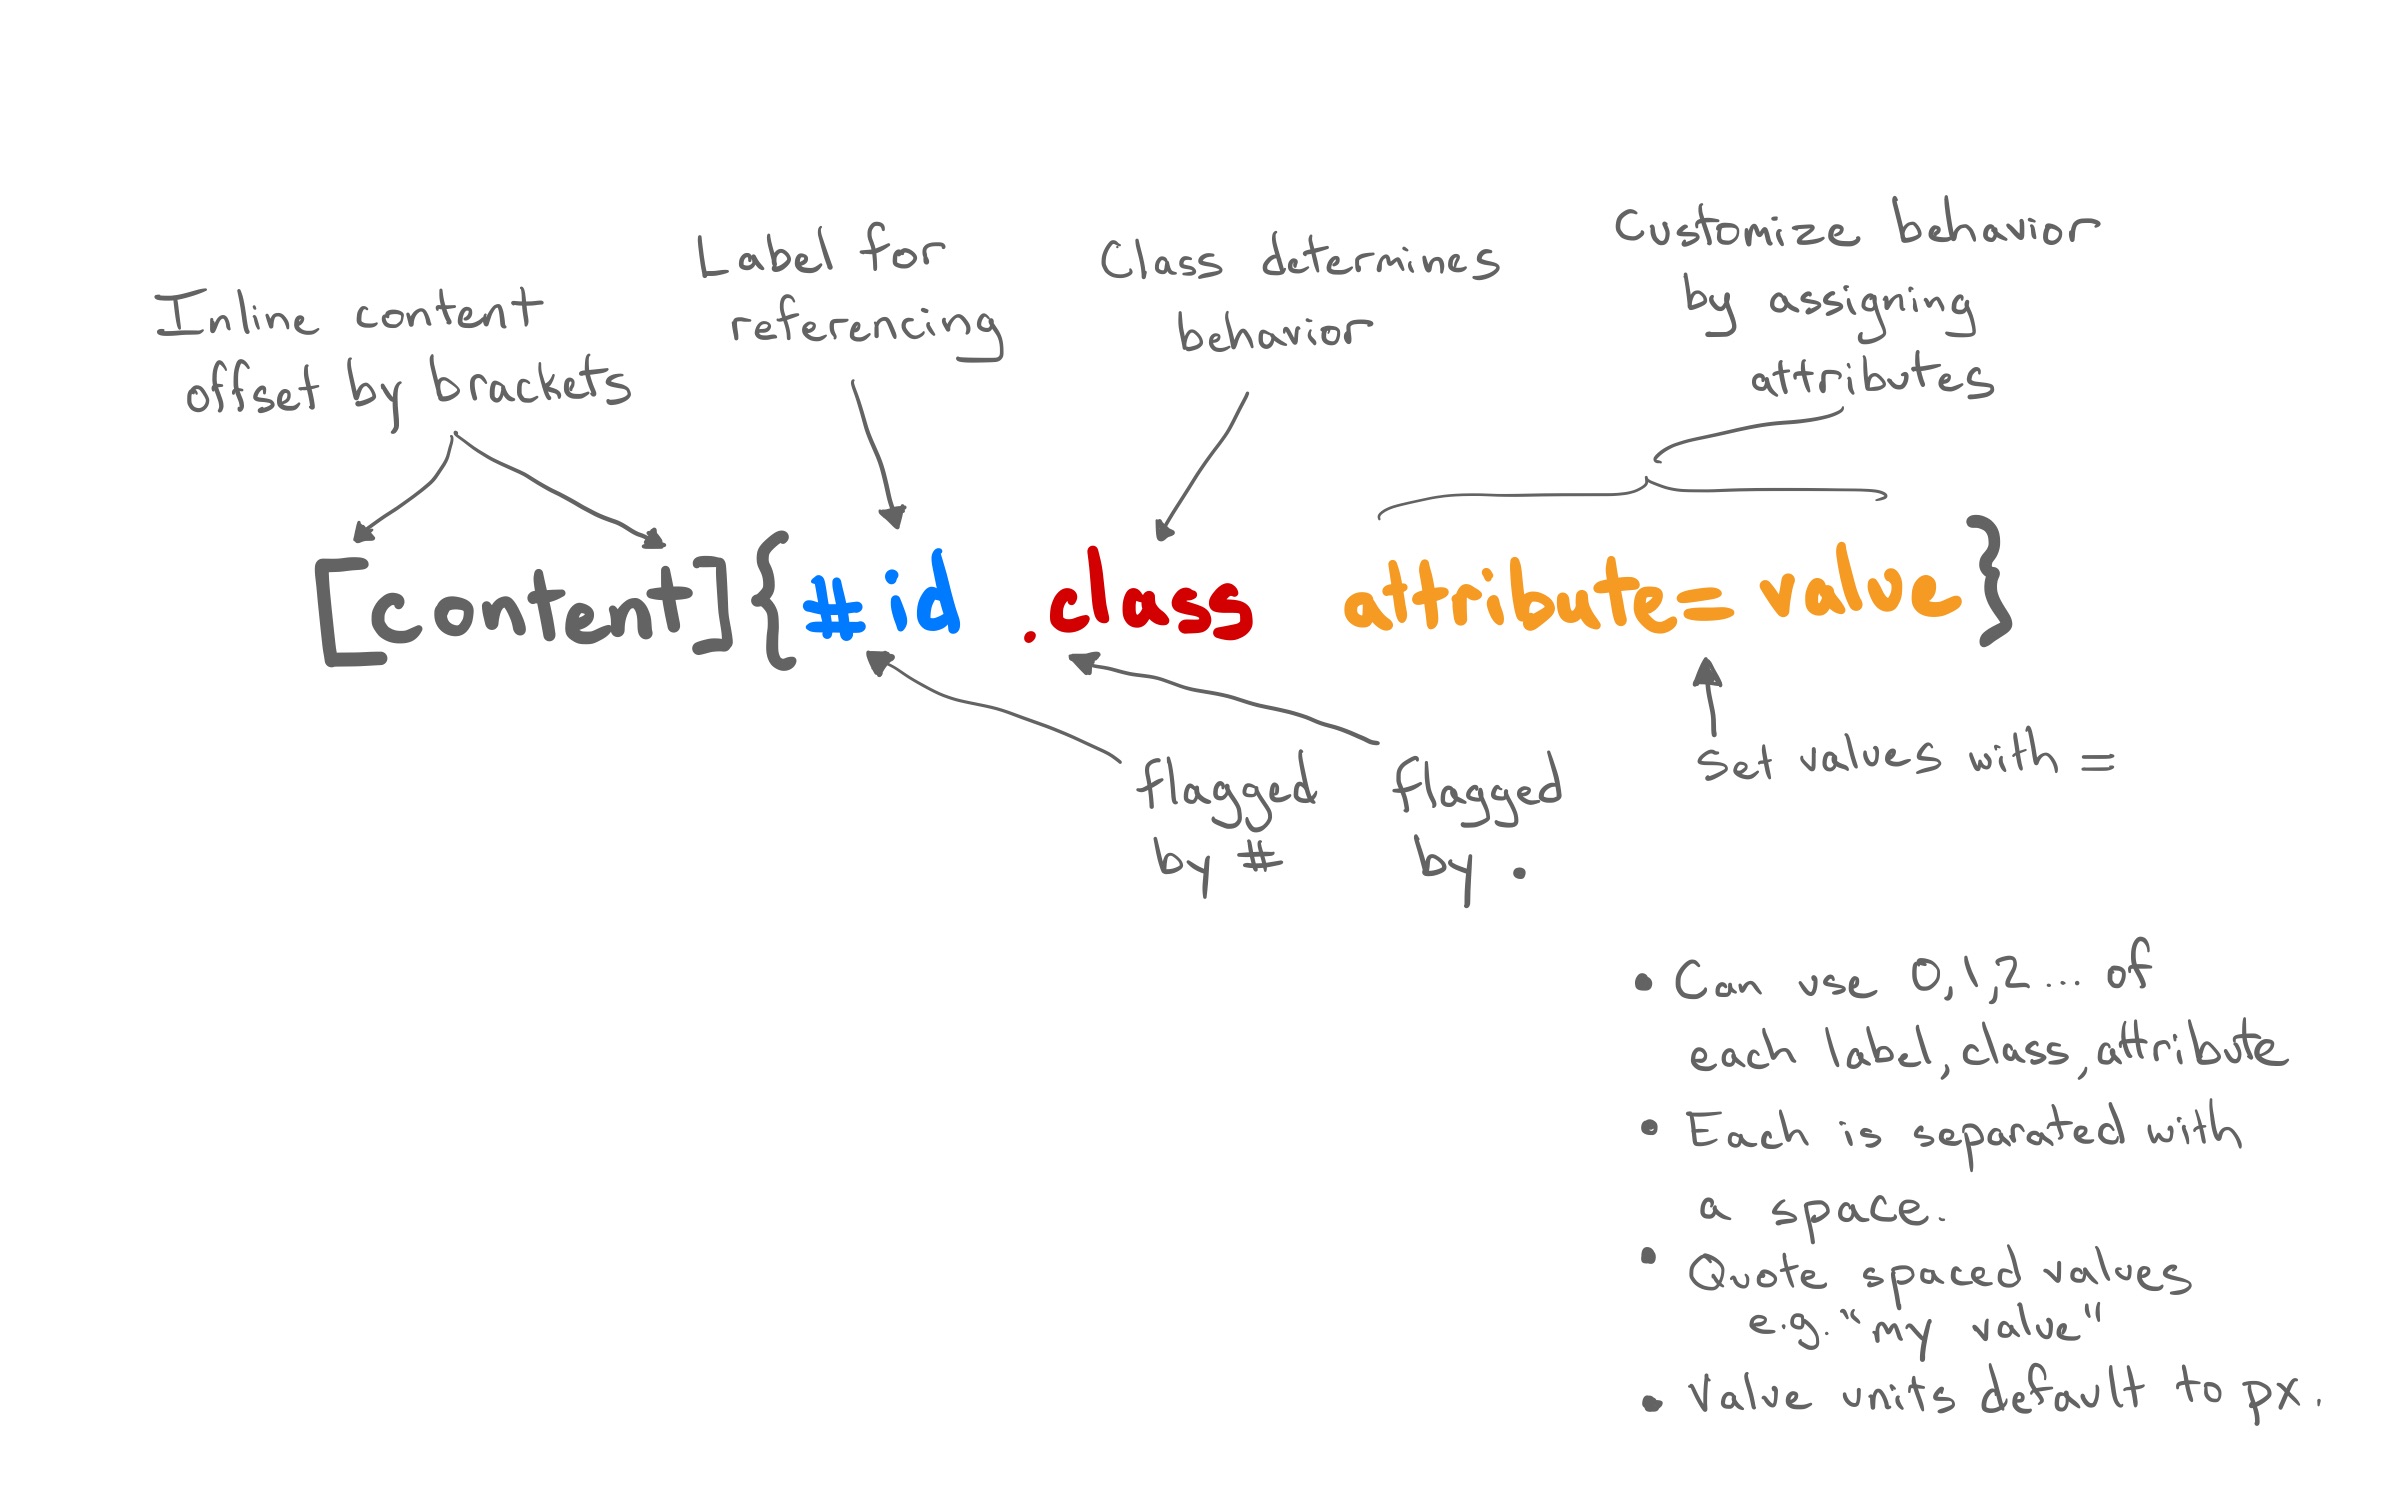 Inline content
offset by brackets
Label for
referencing
Class determines
behavior
Customize behavior
by assigning
attributes
[content]{#id .class attribute=value}
flagged
by #
flagged
by .
set values with =
• Can use 0,1,2... of
each label, class, attribute
• Each is separated with
a space.
• Quote spaced values
e.g. "my value"
• Value units default to px.